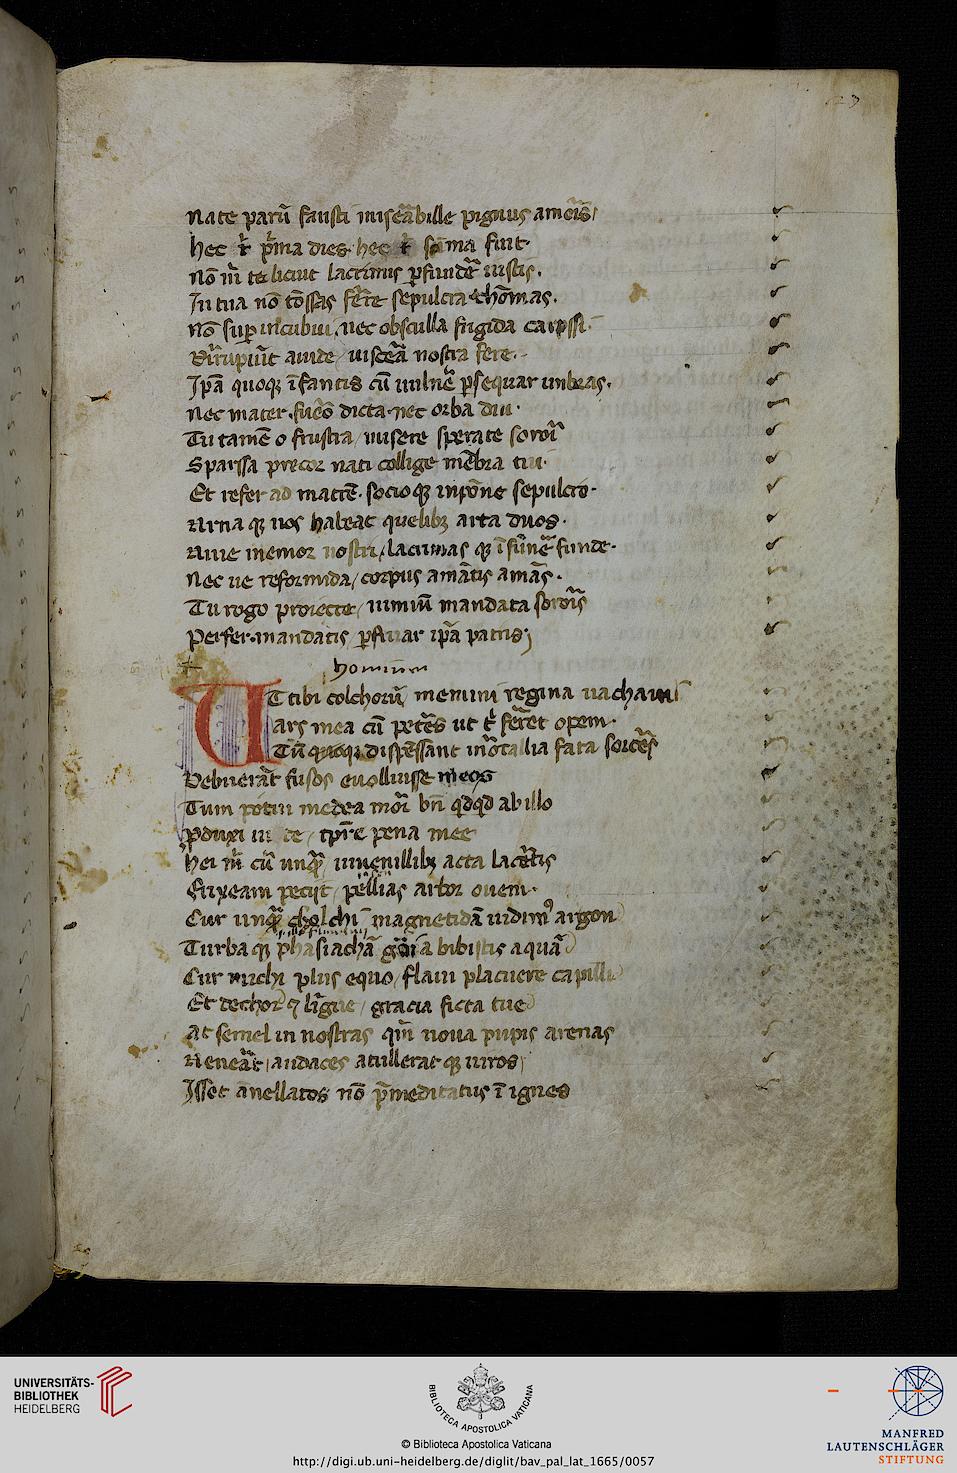 23
Nate parū fausti mis̄eābille pignus amoīs
Hec t̄ p̄ma dies. hec t̄ sūma fuit.
Nō m̄ te licuit lacrimis p̄fundē iustis.
In tua nō tōssas ferre sepulcra chomas.
Nō sup incubui, nec obsculla frigida carpssi.
Dirripiūt auide uisceā nostra fere.
Ipā quoqꝫ īfantis cū uulnē p̄sequar unbras.
Nec mater. fueō dicta. nec orba diu.
Tu tamē o frustra misere sperate sorori
Sparssa precor nati collige mēbra tui.
Et refer ad matrē. socioqꝫ inpōne sepulcro.
Urnaqꝫ nos habeat quelibꝫ arta duos.
Uiue memor nostri, lacrimasqꝫ ī funē funde.
Nec ue reformida, corpus amātis amās.
Tu rogo proiecte, nimiū mandata sorōis
Perfer. mandatis, p̄fruar ipā patris;
UT tibi colchorū, memini regina uachaui
Ars mea cū peteēs ut t̄ ferret opem.
Tū quoqꝫ dispēssant mōtallia fata sorōēs
Debuerāt fusos euolluisse meos
Tum potui medea mori bn̄ qdqd ab illo
Pduxi uitāde, tpr̄e pena mee
Hei m̄ cū unqꝫ iuuenillibꝫ acta lacēris
Frixeam petijt, pelliās arbor ouem.
Cur unqꝫ cholchi magnetidā uidimꝰ argon
Turbaqꝫ phasiachā gāia bibistis aquā
Cur michi plus equo, flaui placuere capilli
Et dechor ⁊ līgue, gracia ficta tue
At semel in nostras qm̄ noua pupis arenas
Ueneāt, audaces atulleratqꝫ uiros,
Isset anellatos nō p̄meditatus ī ignes
UNIVERSITÄTS-
BIBLIOTHEK
HEIDELBERG
BIBLIOTECA APOSTOLICA VATICANA
© Biblioteca Apostolica Vaticana
http://digi.ub.uni-heidelberg.de/diglit/bav_pal_lat_1665/0057
MANFRED
LAUTENSCHLÄGER
STIFTUNG